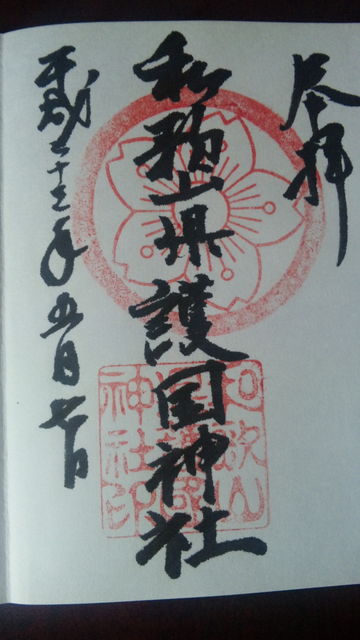 奉拝
和歌山県護国神社
平成二十三年五月七日
和歌山
縣護國
神社印